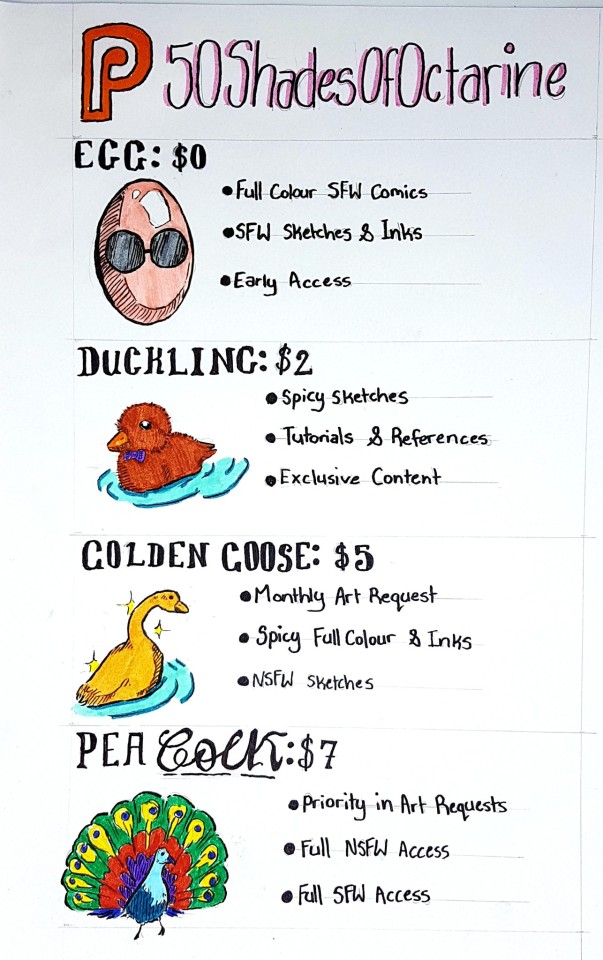 P 50ShadesOfOctarine
EGG: $0
•Full Colour SFW Comics
•SFW Sketches & Inks
•Early Access
DUCKLING: $2
•Spicy Sketches
•Tutorials & References
•Exclusive Content
GOLDEN GOOSE: $5
•Monthly Art Request
•Spicy Full Colour & Inks
•NSFW Sketches
PEACOCK: $7
•Priority in Art Requests
•Full NSFW Access
•Full SFW Access